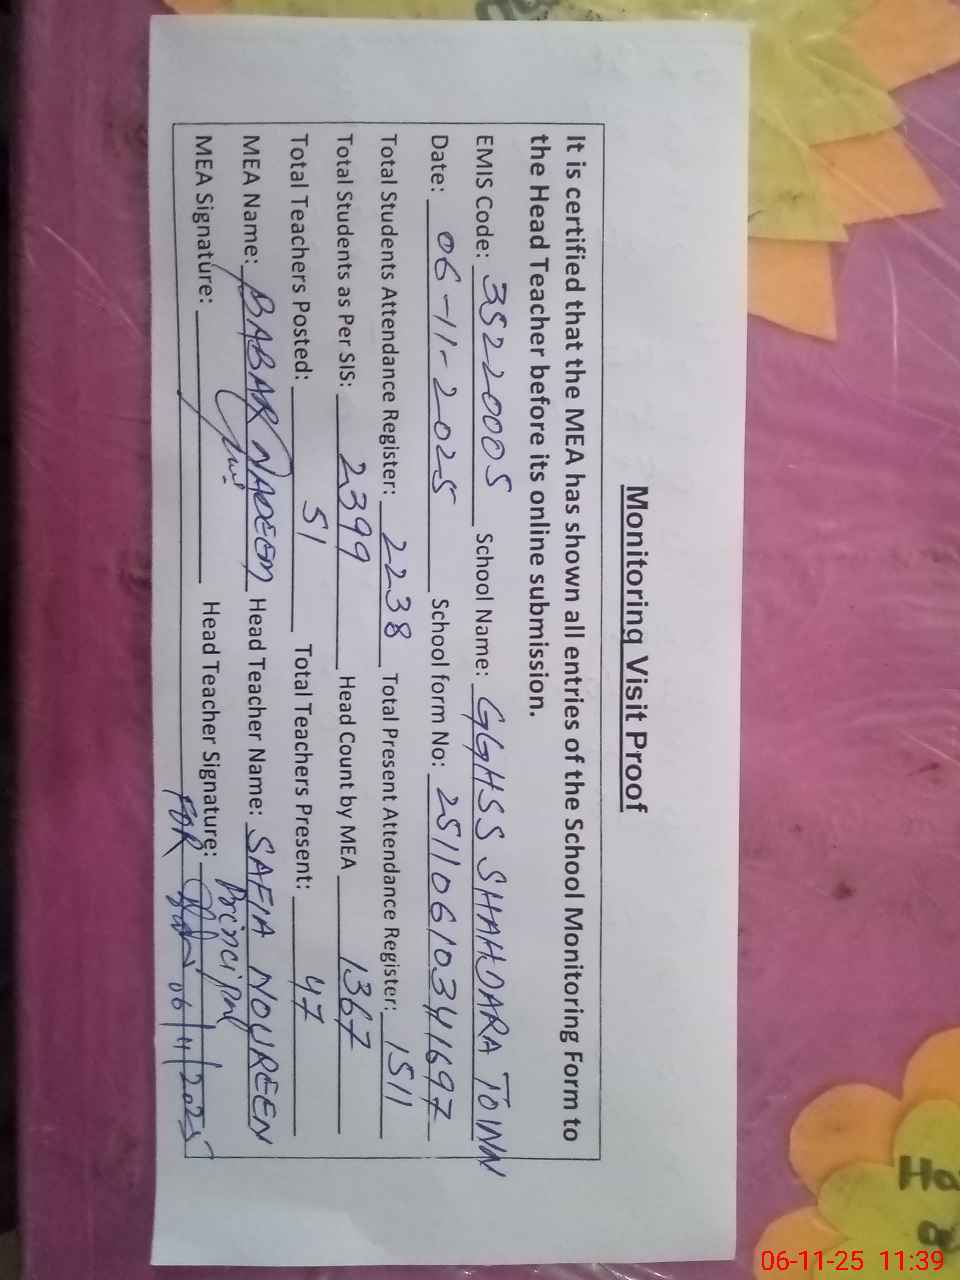 Monitoring Visit Proof
It is certified that the MEA has shown all entries of the School Monitoring Form to
the Head Teacher before its online submission.
EMIS Code: 35220005 School Name: GGHSS SHAHDARA TOWN
Date: 06-11-2025 School form No: 25110610341697
Total Students Attendance Register: 2238 Total Present Attendance Register: 1511
Total Students as Per SIS: 2399 Head Count by MEA 1367
Total Teachers Posted: 51 Total Teachers Present: 47
MEA Name: BABAR NADEEM Head Teacher Name: SAFIA NOUREEN
Principal
MEA Signature: Head Teacher Signature:
FOR 06/11/2025
Ha
06-11-25 11:39